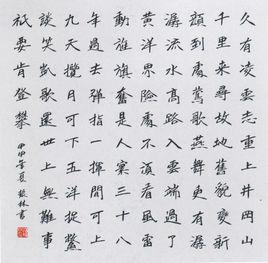 久有凌雲志重上井岡山
千里来尋故地舊貌變新
顔到處鶯歌燕舞更有潺
潺流水高路入雲端過了
黄洋界險處不須看風雷
動旌旗奮是人寰三十八
年過去彈指一揮間可上
九天攬月可下五洋捉鱉
談笑凱歌還世上無難事
祇要肯登攀
甲申年夏 林書